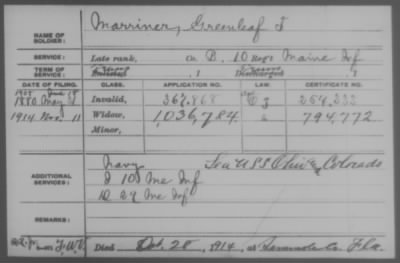 NAME OF SOLDIER: Marriner, Greenleaf T
SERVICE: Late rank, Co. B, 10 Reg't Maine Inf
TERM OF SERVICE: Enlisted , 1 Discharged , 1
DATE OF FILING. CLASS. APPLICATION NO. LAW. CERTIFICATE NO.
1880 May Invalid, 367,868 254,233
1914 Nov. 11 Widow, 1,036,784 794,772
Minor,
ADDITIONAL SERVICES: Navy Sea USS Ohio & Colorado
I 10 Me Inf
D 29 Me Inf
REMARKS:
Died Oct. 28, 1914, at Seminole Co. Fla.